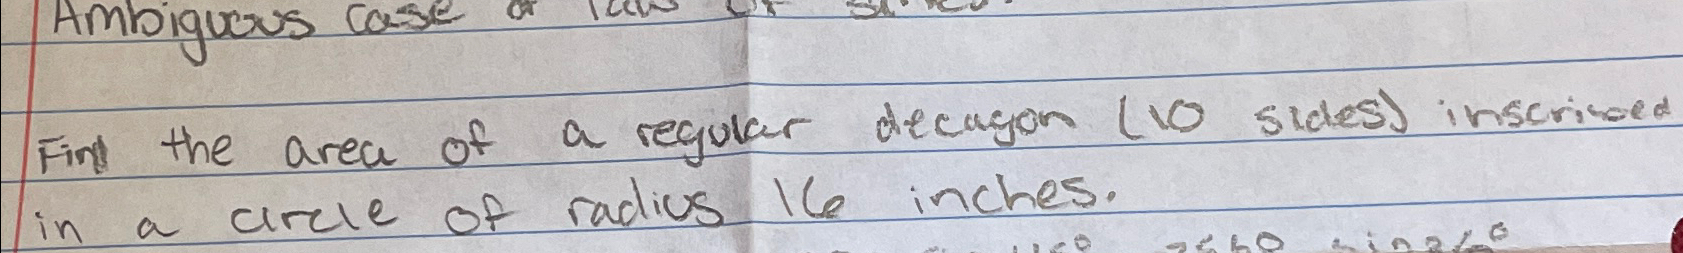 Ambiguous case of law of
Find the area of a regular decagon (10 sides) inscribed
in a circle of radius 16 inches.